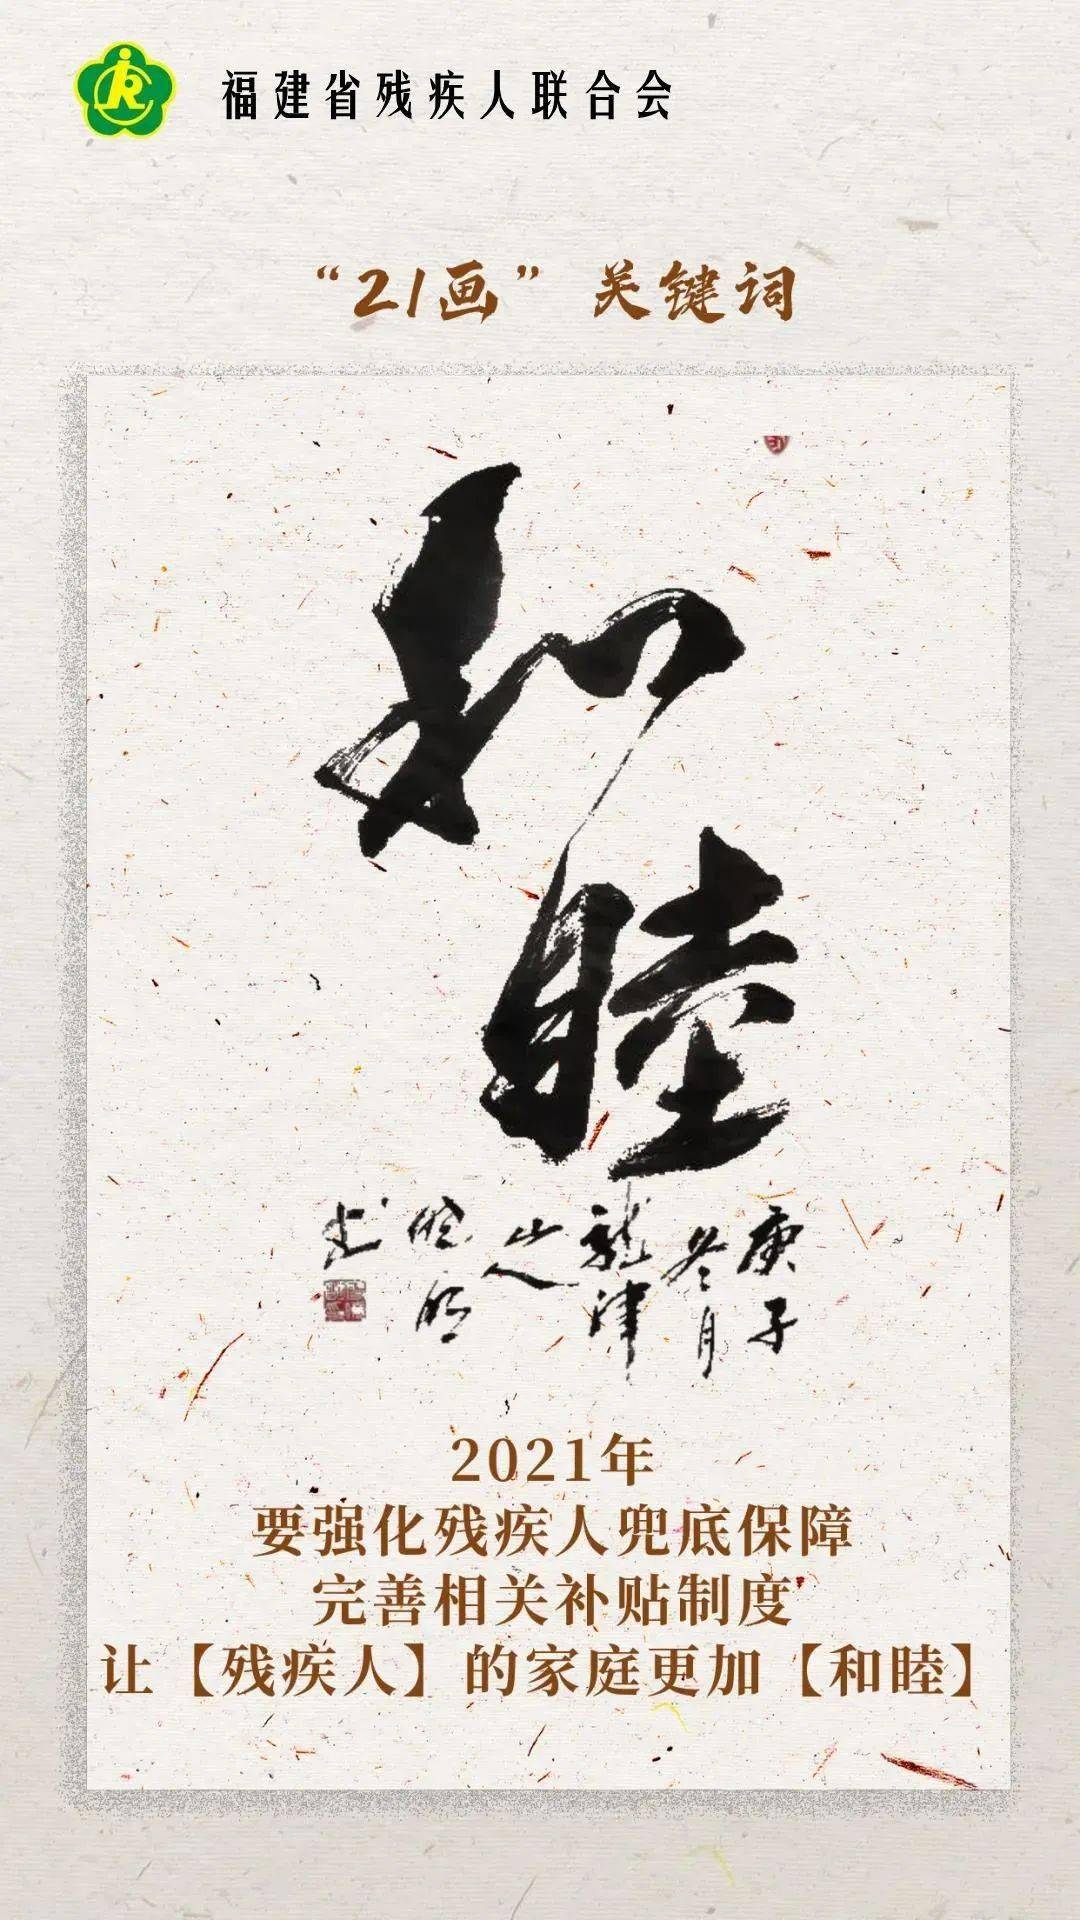 福建省残疾人联合会
“21画”关键词
和睦
庚子
冬月
龍津
山人
2021年
要强化残疾人兜底保障
完善相关补贴制度
让【残疾人】的家庭更加【和睦】